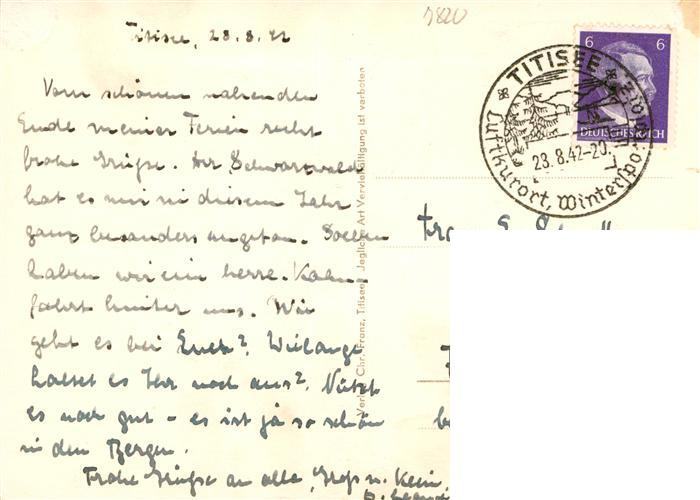 1820
Titisee, 28.8.42
Vom schönen nahenden
Ende meiner Ferien recht
frohe Grüße. Der Schwarzwald
hat es mir in diesem Jahr
ganz besonders angetan. Soeben
haben wir ein herrl. Kahn-
fahrt hinter uns. Wie
geht es bei Euch? Wielange
haltet es Ihr noch aus? Nützt
es noch gut - es ist ja so schön
in den Bergen.
Frohe Grüße an alle, Groß u. Klein,
Verlag Chr. Franz, Titisee. Jegliche Art Vervielfältigung ist verboten
TITISEE
28.8.42-20
Luftkurort, Winterspo
6 6
DEUTSCHES REICH